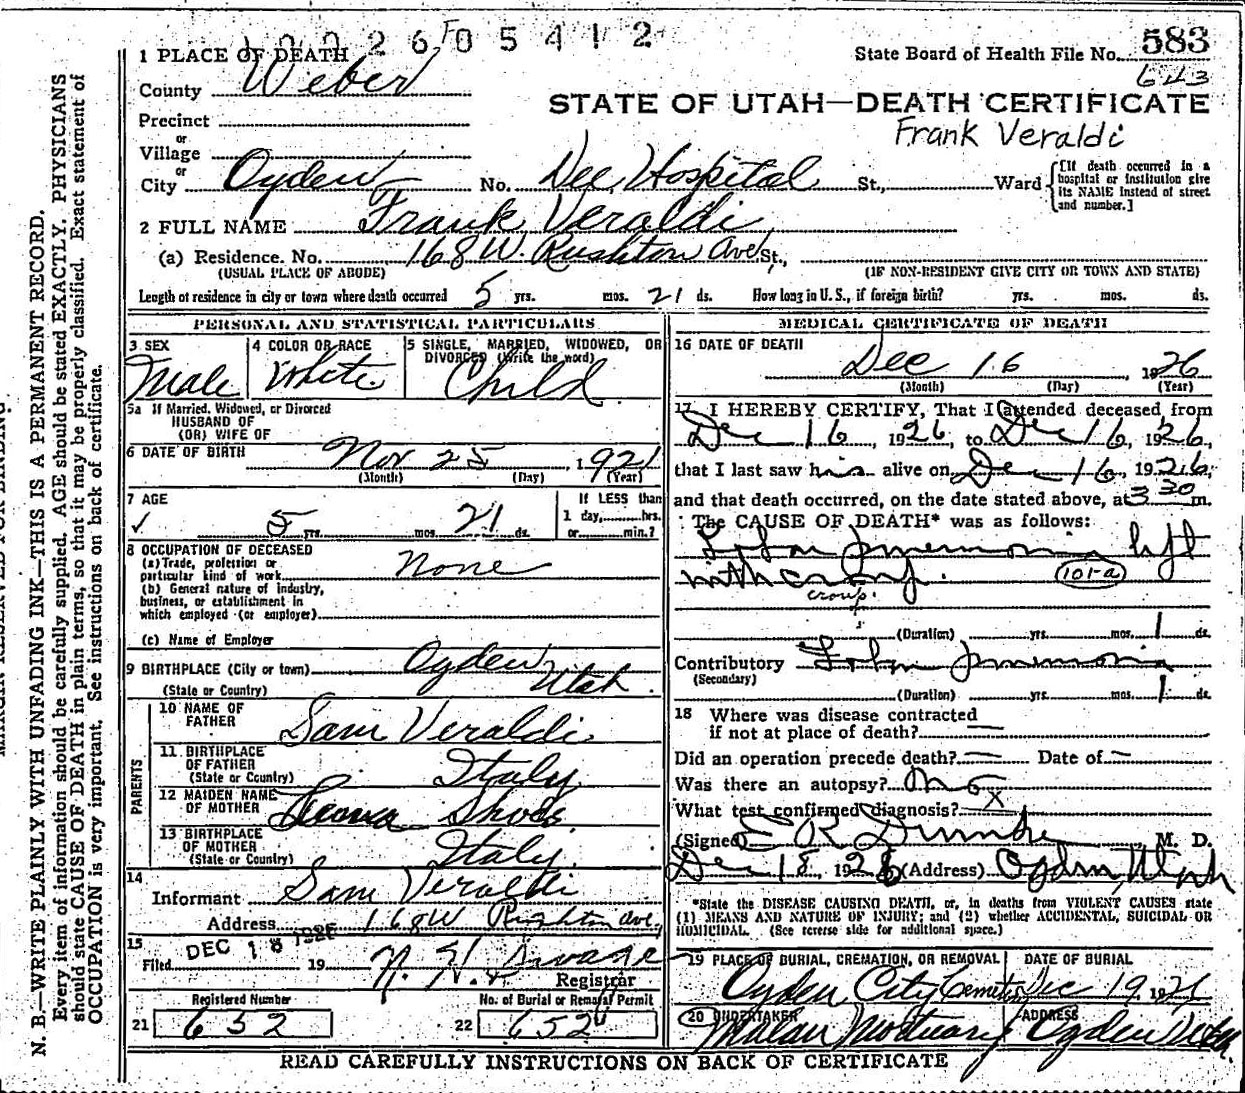 1 9 2 6 F 0 5 4 1 2
State Board of Health File No. 583
643
1 PLACE OF DEATH
County Weber
STATE OF UTAH—DEATH CERTIFICATE
Frank Veraldi
Precinct
or
Village
or
City Ogden No. Dee Hospital St., Ward
[If death occurred in a hospital or institution give its NAME instead of street and number.]
2 FULL NAME Frank Veraldi
(a) Residence. No. 168 W. Rushton Ave St.,
(USUAL PLACE OF ABODE) (IF NON-RESIDENT GIVE CITY OR TOWN AND STATE)
Length of residence in city or town where death occurred 5 yrs. mos. 21 ds. How long in U. S., if foreign birth? yrs. mos. ds.
PERSONAL AND STATISTICAL PARTICULARS
3 SEX
Male
4 COLOR OR RACE
White
5 SINGLE, MARRIED, WIDOWED, OR
DIVORCED (Write the word)
Child
5a If Married, Widowed, or Divorced
HUSBAND OF
(OR) WIFE OF
6 DATE OF BIRTH Nov 25, 1921
(Month) (Day) (Year)
7 AGE
✓ 5 yrs. mos. 21 ds.
If LESS than
1 day,......hrs.
or......min.?
8 OCCUPATION OF DECEASED
(a) Trade, profession or
particular kind of work None
(b) General nature of industry,
business, or establishment in
which employed (or employer)
(c) Name of Employer
9 BIRTHPLACE (City or town) Ogden
(State or Country) Utah
PARENTS
10 NAME OF
FATHER Sam Veraldi
11 BIRTHPLACE
OF FATHER
(State or Country) Italy
12 MAIDEN NAME
OF MOTHER
13 BIRTHPLACE
OF MOTHER
(State or Country) Italy
14
Informant Sam Veraldi
Address 168 W Rushton ave
15 DEC 18 1926
Filed 19 N. H. Savage
Registrar
Registered Number
21 632
No. of Burial or Removal Permit
22 652
MEDICAL CERTIFICATE OF DEATH
16 DATE OF DEATH
Dec 16 1926
(Month) (Day) (Year)
17 I HEREBY CERTIFY, That I attended deceased from
Dec 16, 1926, to Dec 16, 1926,
that I last saw his alive on Dec 16, 1926,
and that death occurred, on the date stated above, at 3 30 m.
The CAUSE OF DEATH* was as follows:
Lobar pneumonia left
with croup. 101-a
croup.
(Duration) yrs. mos. 1 ds.
Contributory Lobar pneumonia
(Secondary)
(Duration) yrs. mos. 1 ds.
18 Where was disease contracted
if not at place of death? —
Did an operation precede death? — Date of —
Was there an autopsy? no
What test confirmed diagnosis? X
(Signed) E R M. D.
Dec 18, 1926 (Address) Ogden, Utah
*State the DISEASE CAUSING DEATH, or, in deaths from VIOLENT CAUSES state
(1) MEANS AND NATURE OF INJURY; and (2) whether ACCIDENTAL, SUICIDAL OR
HOMICIDAL. (See reverse side for additional space.)
19 PLACE OF BURIAL, CREMATION, OR REMOVAL
Ogden City Cemetery
DATE OF BURIAL
Dec 19, 1926
20 UNDERTAKER
Malan Mortuary
ADDRESS
Ogden Utah.
READ CAREFULLY INSTRUCTIONS ON BACK OF CERTIFICATE
MARGIN RESERVED FOR BINDING.
N. B.—WRITE PLAINLY WITH UNFADING INK—THIS IS A PERMANENT RECORD.
Every item of information should be carefully supplied. AGE should be stated EXACTLY. PHYSICIANS
should state CAUSE OF DEATH in plain terms, so that it may be properly classified. Exact statement of
OCCUPATION is very important. See instructions on back of certificate.